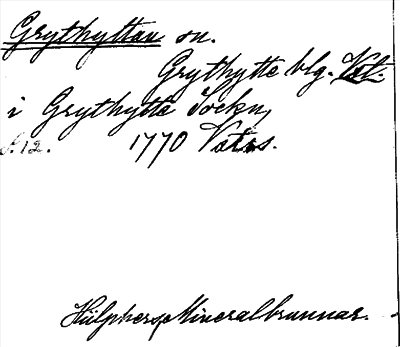 Grythyttan sn.
Grythytte blg. Vstl.
i Grythytte Sockn,
S. 12. 1770 Vstrs.
Hülphers, Mineralbrunnar.